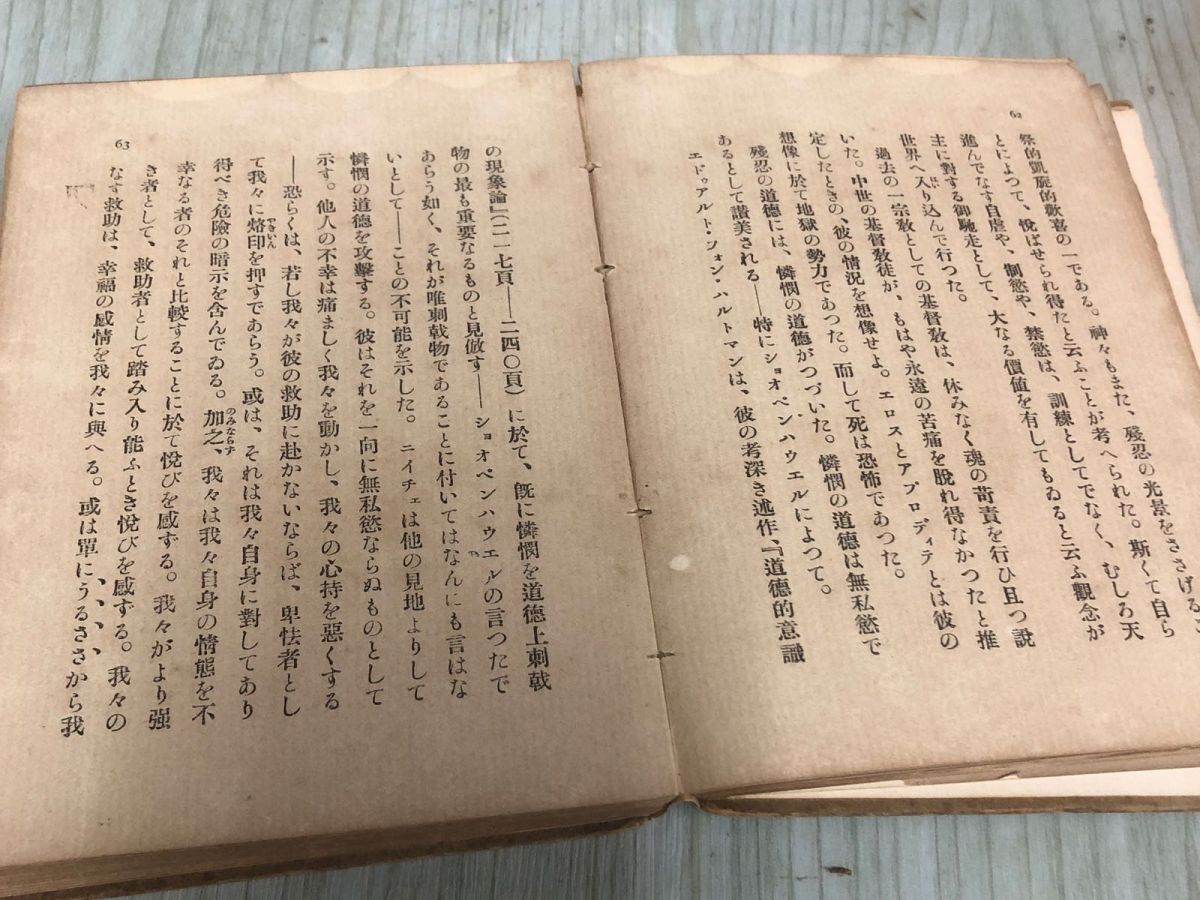 62
祭的凱旋的歡喜の一である。神々もまた、殘忍の光景をささげるこ
とによつて、悅ばせられ得たと云ふことが考へられた。斯くて自ら
進んでなす自虐や、制慾や、禁慾は、訓練としてでなく、むしろ天
主に對する御馳走として、大なる價値を有してもゐると云ふ觀念が
世界へ入り込んで行つた。
過去の一宗敎としての基督敎は、休みなく魂の苛責を行ひ且つ說
いた。中世の基督敎徒が、もはや永遠の苦痛を脫れ得なかつたと推
定したときの、彼の情況を想像せよ。エロスとアプロディテとは彼の
想像に於て地獄の勢力であつた。而して死は恐怖であつた。
殘忍の道德には、憐憫の道德がつづいた。憐憫の道德は無私慾で
あるとして讃美される——特にショオペンハウエルによつて。
エドゥアルト・フォン・ハルトマンは、彼の考深き述作、『道德的意識
の現象論』(二一七頁——二四〇頁)に於て、旣に憐憫を道德上刺戟
物の最も重要なるものと見倣す——ショオペンハウエルの言つたで
あらう如く、それが唯刺戟物であることに付いてはなんにも言はな
いとして——ことの不可能を示した。ニイチェは他の見地よりして
憐憫の道德を攻擊する。彼はそれを一向に無私慾ならぬものとして
示す。他人の不幸は痛ましく我々を動かし、我々の心持を惡くする
——恐らくは、若し我々が彼の救助に赴かないならば、卑怯者とし
て我々に烙印を押すであらう。或は、それは我々自身に對してあり
やきいん
得べき危險の暗示を含んでゐる。加之、我々は我々自身の情態を不
のみならず
幸なる者のそれと比較することに於て悅びを感ずる。我々がより强
き者として、救助者として踏み入り能ふとき悅びを感ずる。我々の
なす救助は、幸福の感情を我々に與へる。或は單にうるささから我
63